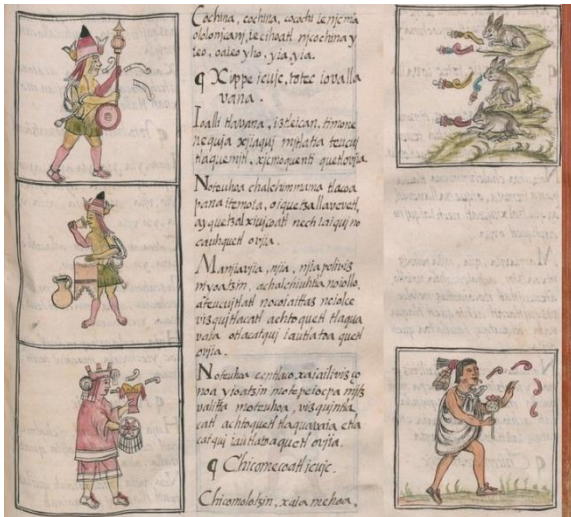 Cochina, cochina, cocochi ie nicma
ololo njcanj, ie cihoatl njcochina y
yeo, oaieo yho, yia, yia.
¶ Xippe jcujc, totec iovalla
vana.
Ioalli tlavana, iz teican, timone
nequja xijaqui mjtlatia teucuj
tlaquemjtl, xicmoquenti quetl ovija.
Noteuhoa chalchimmama tlacoa
pana itemoia, oi quetzallavevetl,
ay quetzal xivicoatl nech iaiqui no
cauhquetl ovija.
Manjiavija, njia, njia poliviz
nj yoatzin, achalchiuhtla noiollo,
ateucuitlatl nocoiaittaz noiolce
vizqui tlacatl achtoquetl tlaqua
vaia otlacatqui iautlatoa quetl
ovija.
Noteuhoa centlaco xaiailiviz ço
noa yioatzin motepeiocpa mjtz
valitta moteuhoa, vizquintla
catl achtoquetl tlaquavaia, etla
catqui iautlatoaquetl ovija.
¶ Chicomecoatl jcujc.
Chicomolotzin, xaia mehoa,